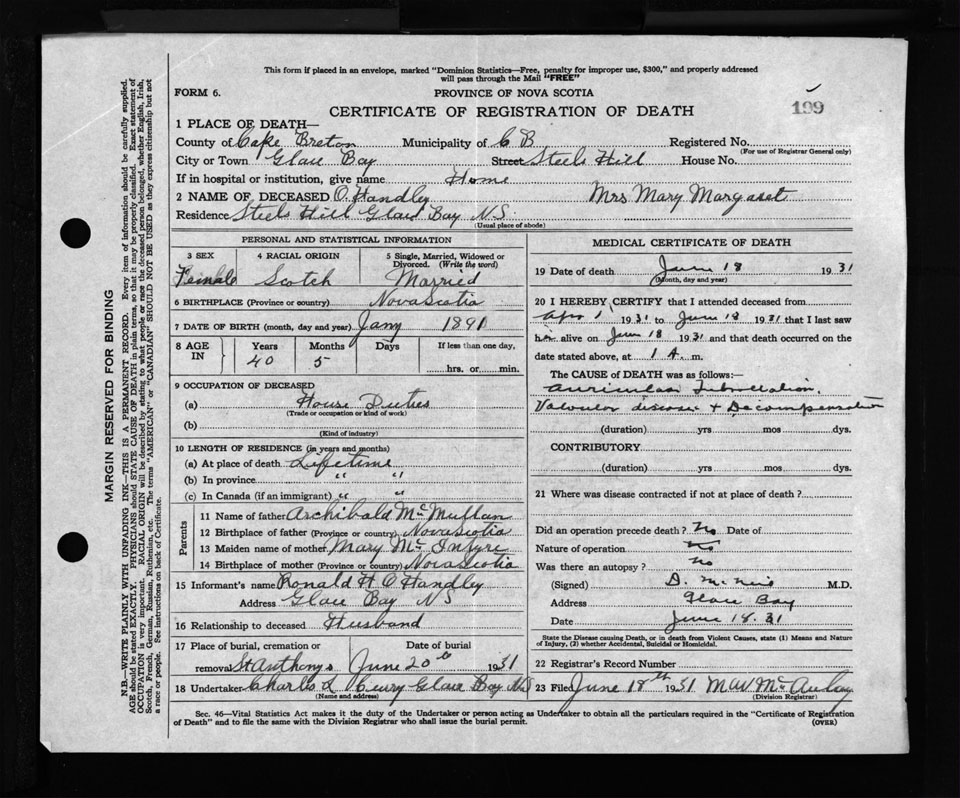 This form if placed in an envelope, marked "Dominion Statistics—Free, penalty for improper use, $300," and properly addressed
will pass through the Mail "FREE"
FORM 6.
PROVINCE OF NOVA SCOTIA
CERTIFICATE OF REGISTRATION OF DEATH
199
1 PLACE OF DEATH—
County of Cape Breton Municipality of C B Registered No.
(For use of Registrar General only)
City or Town Glace Bay Street Steels Hill House No.
If in hospital or institution, give name Home
2 NAME OF DECEASED O'Handley Mrs Mary Margaret
Residence Steels Hill Glace Bay N.S.
(Usual place of abode)
PERSONAL AND STATISTICAL INFORMATION
3 SEX 4 RACIAL ORIGIN 5 Single, Married, Widowed or Divorced. (Write the word)
Female Scotch Married
6 BIRTHPLACE (Province or country) Nova Scotia
7 DATE OF BIRTH (month, day and year) Jany 1891
8 AGE IN Years Months Days If less than one day,
40 5 hrs. or min.
9 OCCUPATION OF DECEASED
(a) House Duties
(Trade or occupation or kind of work)
(b)
(Kind of industry)
10 LENGTH OF RESIDENCE (in years and months)
(a) At place of death Lifetime
(b) In province " "
(c) In Canada (if an immigrant) " "
Parents
11 Name of father Archibald McMullan
12 Birthplace of father (Province or country) Nova Scotia
13 Maiden name of mother Mary McIntyre
14 Birthplace of mother (Province or country) Nova Scotia
15 Informant's name Ronald H O'Handley
Address Glace Bay NS
16 Relationship to deceased Husband
17 Place of burial, cremation or Date of burial
removal St Anthonys June 20th 1931
18 Undertaker Charles L Curry Glace Bay NS
(Name and address)
MEDICAL CERTIFICATE OF DEATH
19 Date of death June 18 1931
(Month, day and year)
20 I HEREBY CERTIFY that I attended deceased from
Apr 1 1931 to June 18 1931 that I last saw
h alive on June 18 1931 and that death occurred on the
date stated above, at 1 A. m.
The CAUSE OF DEATH was as follows:—
Auricular Fibrillation,
Valvular disease + Decompensation
(duration) yrs mos dys.
CONTRIBUTORY
(duration) yrs mos dys.
21 Where was disease contracted if not at place of death?
Did an operation precede death? No Date of
Nature of operation No
Was there an autopsy? No
(Signed) D. McNeil M.D.
Address Glace Bay
Date June 18.31
State the Disease causing Death, or in death from Violent Causes, state (1) Means and Nature
of Injury, (2) whether Accidental, Suicidal or Homicidal.
22 Registrar's Record Number
23 Filed June 18th 1931 McAulay
(Division Registrar)
Sec. 46—Vital Statistics Act makes it the duty of the Undertaker or person acting as Undertaker to obtain all the particulars required in the "Certificate of Registration
of Death" and to file the same with the Division Registrar who shall issue the burial permit.
(OVER)
MARGIN RESERVED FOR BINDING
N.B.—WRITE PLAINLY WITH UNFADING INK—THIS IS A PERMANENT RECORD. Every item of information should be carefully supplied.
AGE should be stated EXACTLY. PHYSICIANS should STATE CAUSE OF DEATH in plain terms, so that it may be properly classified. Exact statement of
OCCUPATION is very important. RACIAL ORIGIN will be described by stating to what people or race the deceased person belonged, whether English, Irish,
Scotch, French, German, Russian, Ruthenian, etc. The terms "AMERICAN" or "CANADIAN" SHOULD NOT BE USED as they express citizenship but not
a race or people. See instructions on back of Certificate.